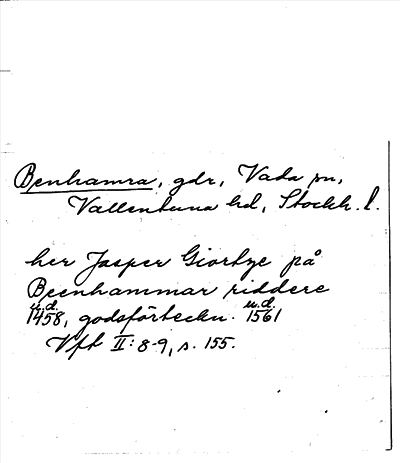 Benhamra, gdr, Vada sn,
Vallentuna hd, Stockh. l.
her Jasper Giortze på
Beenhammar riddere
u.d. 1458, godsförteckn. u.d. 1561
Vfl II: 8-9, s. 155.